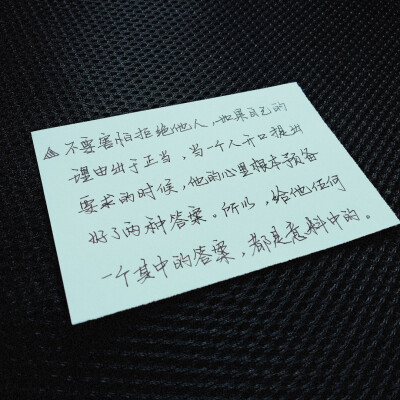 不要害怕拒绝他人,如果自己的
理由出于正当,当一个人开口提出
要求的时候,他的心里根本预备
好了两种答案。所以,给他任何
一个其中的答案,都是意料中的。